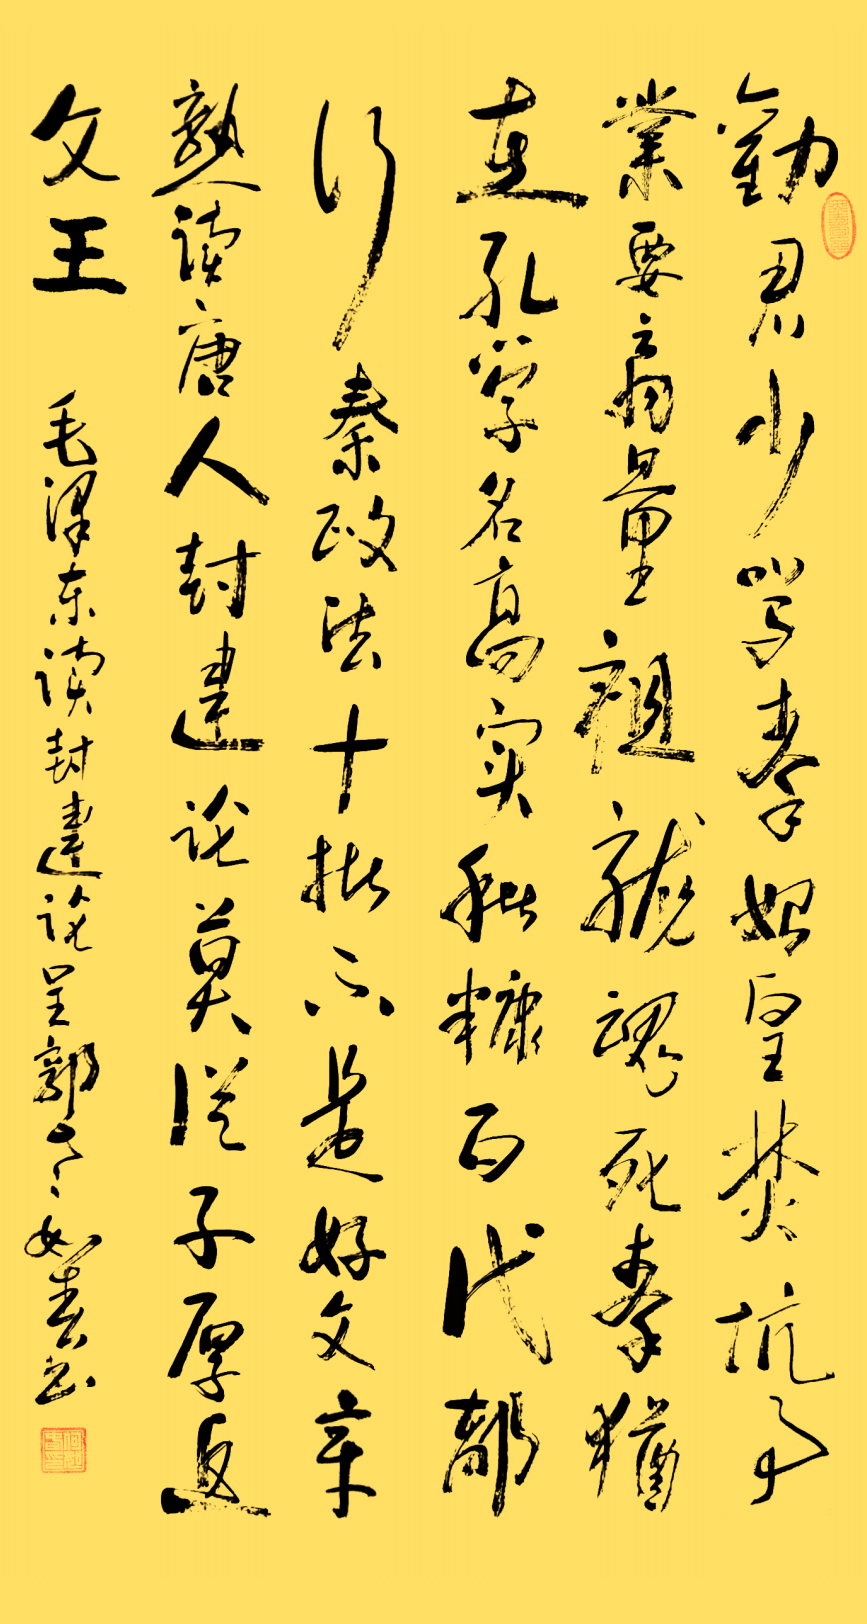 勸君少骂秦始皇焚坑事
業要商量祖龍魂死秦猶
在孔学名高实秕糠百代都
行秦政法十批不是好文章
熟读唐人封建论莫從子厚返
文王
毛泽东读封建论呈郭老如春书